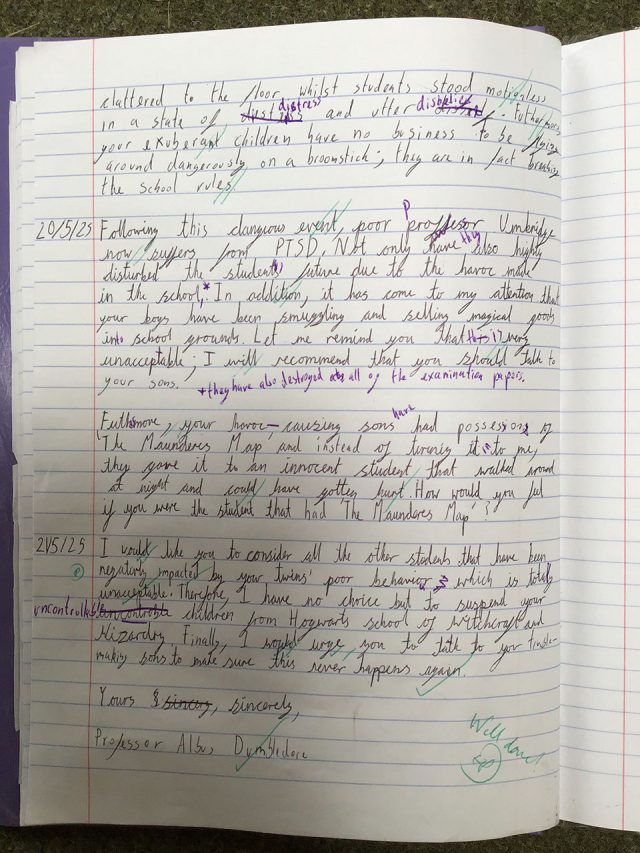 clattered to the floor whilst students stood motionless
in a state of distress and utter disbelief. Futhermore
your exuberant children have no business to be flying
around dangerously on a broomstick; they are in fact breaking
the school rules.
20/5/25 Following this dangious event, poor professor Umbridge
P
now suffers from PTSD. Not only have they also highly
disturbed the students' future due to the havoc made
in the school.* In addition, it has come to my attention that
your boys have been smuggling and selling magical goods
into school grounds. Let me remind you that this is very
unacceptable; I will recommend that you should talk to
your sons. *they have also destroyed all of the examination papers.
Futhmore, your havoc-causing sons had possession of
have
'The Maunderes Map' and instead of turning it into me,
they gave it to an innocent student that walked around
at night and could have gotten hurt. How would you feel
if you were the student that had 'The Maunderes Map'?
21/5/25 I would like you to consider all the other students that have been
negativity impacted by your twins' poor behaviour which is totally
unacceptable. Therefore, I have no choice but to suspend your
uncontrollable children from Hogwarts school of witchcraft and
Wizardry. Finally, I would urge you to talk to your trouble-
making sons to make sure this never happens again.
Yours sincerely,
Professor Albus Dumbledore
Well done!